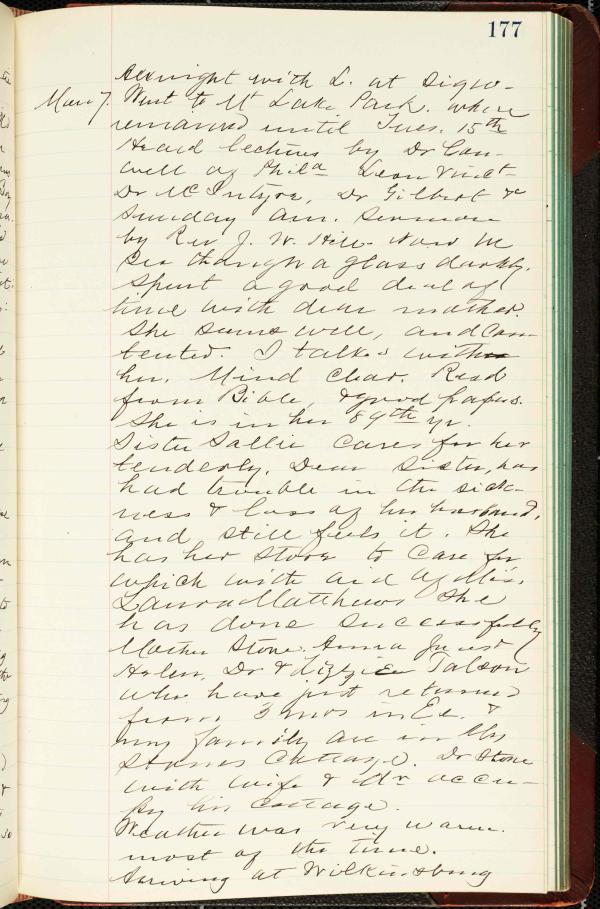 177
night with L. at
Mon 7. Went to Mt Lake Park. where
remained until Tues. 15th
Heard lectures by Dr Con-
well of Phila Leon Vincet
Dr McIntyre, Dr Gilbert &
Sunday am. Sermon
by Rev J. W. Hill. Now we
see through a glass darkly.
Spent a good deal of
time with dear mother.
She seems well, and con-
tented. I talked with
her. Mind clear. Read
from Bible, & good papers.
She is in her 89th yr.
Sister Sallie cares for her
tenderly. Dear Sister, has
had trouble in the sick-
ness & loss of her husband,
and still feels it. She
has her store to care for
which with aid of Miss.
Laura Matthews she
has done successfully
Mother Stone. Anna
Helen, Dr & Lizzie
who have just returned
from 3 mos in Eu. &
my family are in Mrs
Stones Cottage. Dr Stone
with wife & dr occu-
py his cottage.
Weather was very warm
most of the time.
Arriving at Wilkinsburg